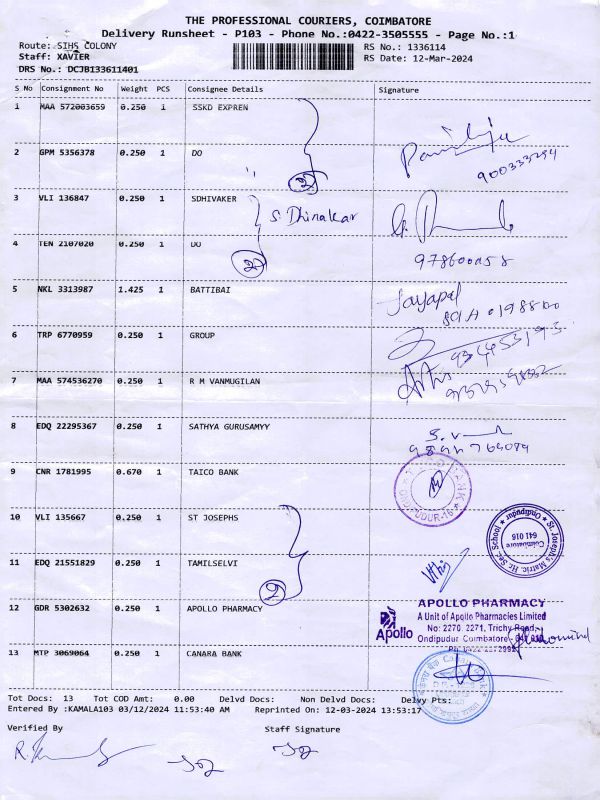 THE PROFESSIONAL COURIERS, COIMBATORE
Delivery Runsheet - P103 - Phone No.:0422-3505555 - Page No.:1
Route: SIHS COLONY
RS No.: 1336114
Staff: XAVIER
RS Date: 12-Mar-2024
DRS No.: DCJB133611401
S No Consignment No Weight PCS Consignee Details Signature
1 MAA 572003659 0.250 1 SSKD EXPREN
2 GPM 5356378 0.250 1 DO
2
3 VLI 136847 0.250 1 SDHIVAKER S. Dhinakar
4 TEN 2107020 0.250 1 DO
2
5 NKL 3313987 1.425 1 BATTIBAI Jayapal
6 TRP 6770959 0.250 1 GROUP
7 MAA 574536270 0.250 1 R M VANMUGILAN
8 EDQ 22295367 0.250 1 SATHYA GURUSAMYY
9 CNR 1781995 0.670 1 TAICO BANK
10 VLI 135667 0.250 1 ST JOSEPHS
St. Joseph's Matric. Hr. Sec. School
Ondipudur
Coimbatore
641 016
11 EDQ 21551829 0.250 1 TAMILSELVI
2
12 GDR 5302632 0.250 1 APOLLO PHARMACY
Apollo
APOLLO PHARMACY
A Unit of Apollo Pharmacies Limited
No: 2270, 2271, Trichy Road,
Ondipudur Coimbatore
13 MTP 3069064 0.250 1 CANARA BANK
Tot Docs: 13 Tot COD Amt: 0.00 Delvd Docs: Non Delvd Docs: Delvy Pts:
Entered By :KAMALA103 03/12/2024 11:53:40 AM Reprinted On: 12-03-2024 13:53:17
Verified By Staff Signature